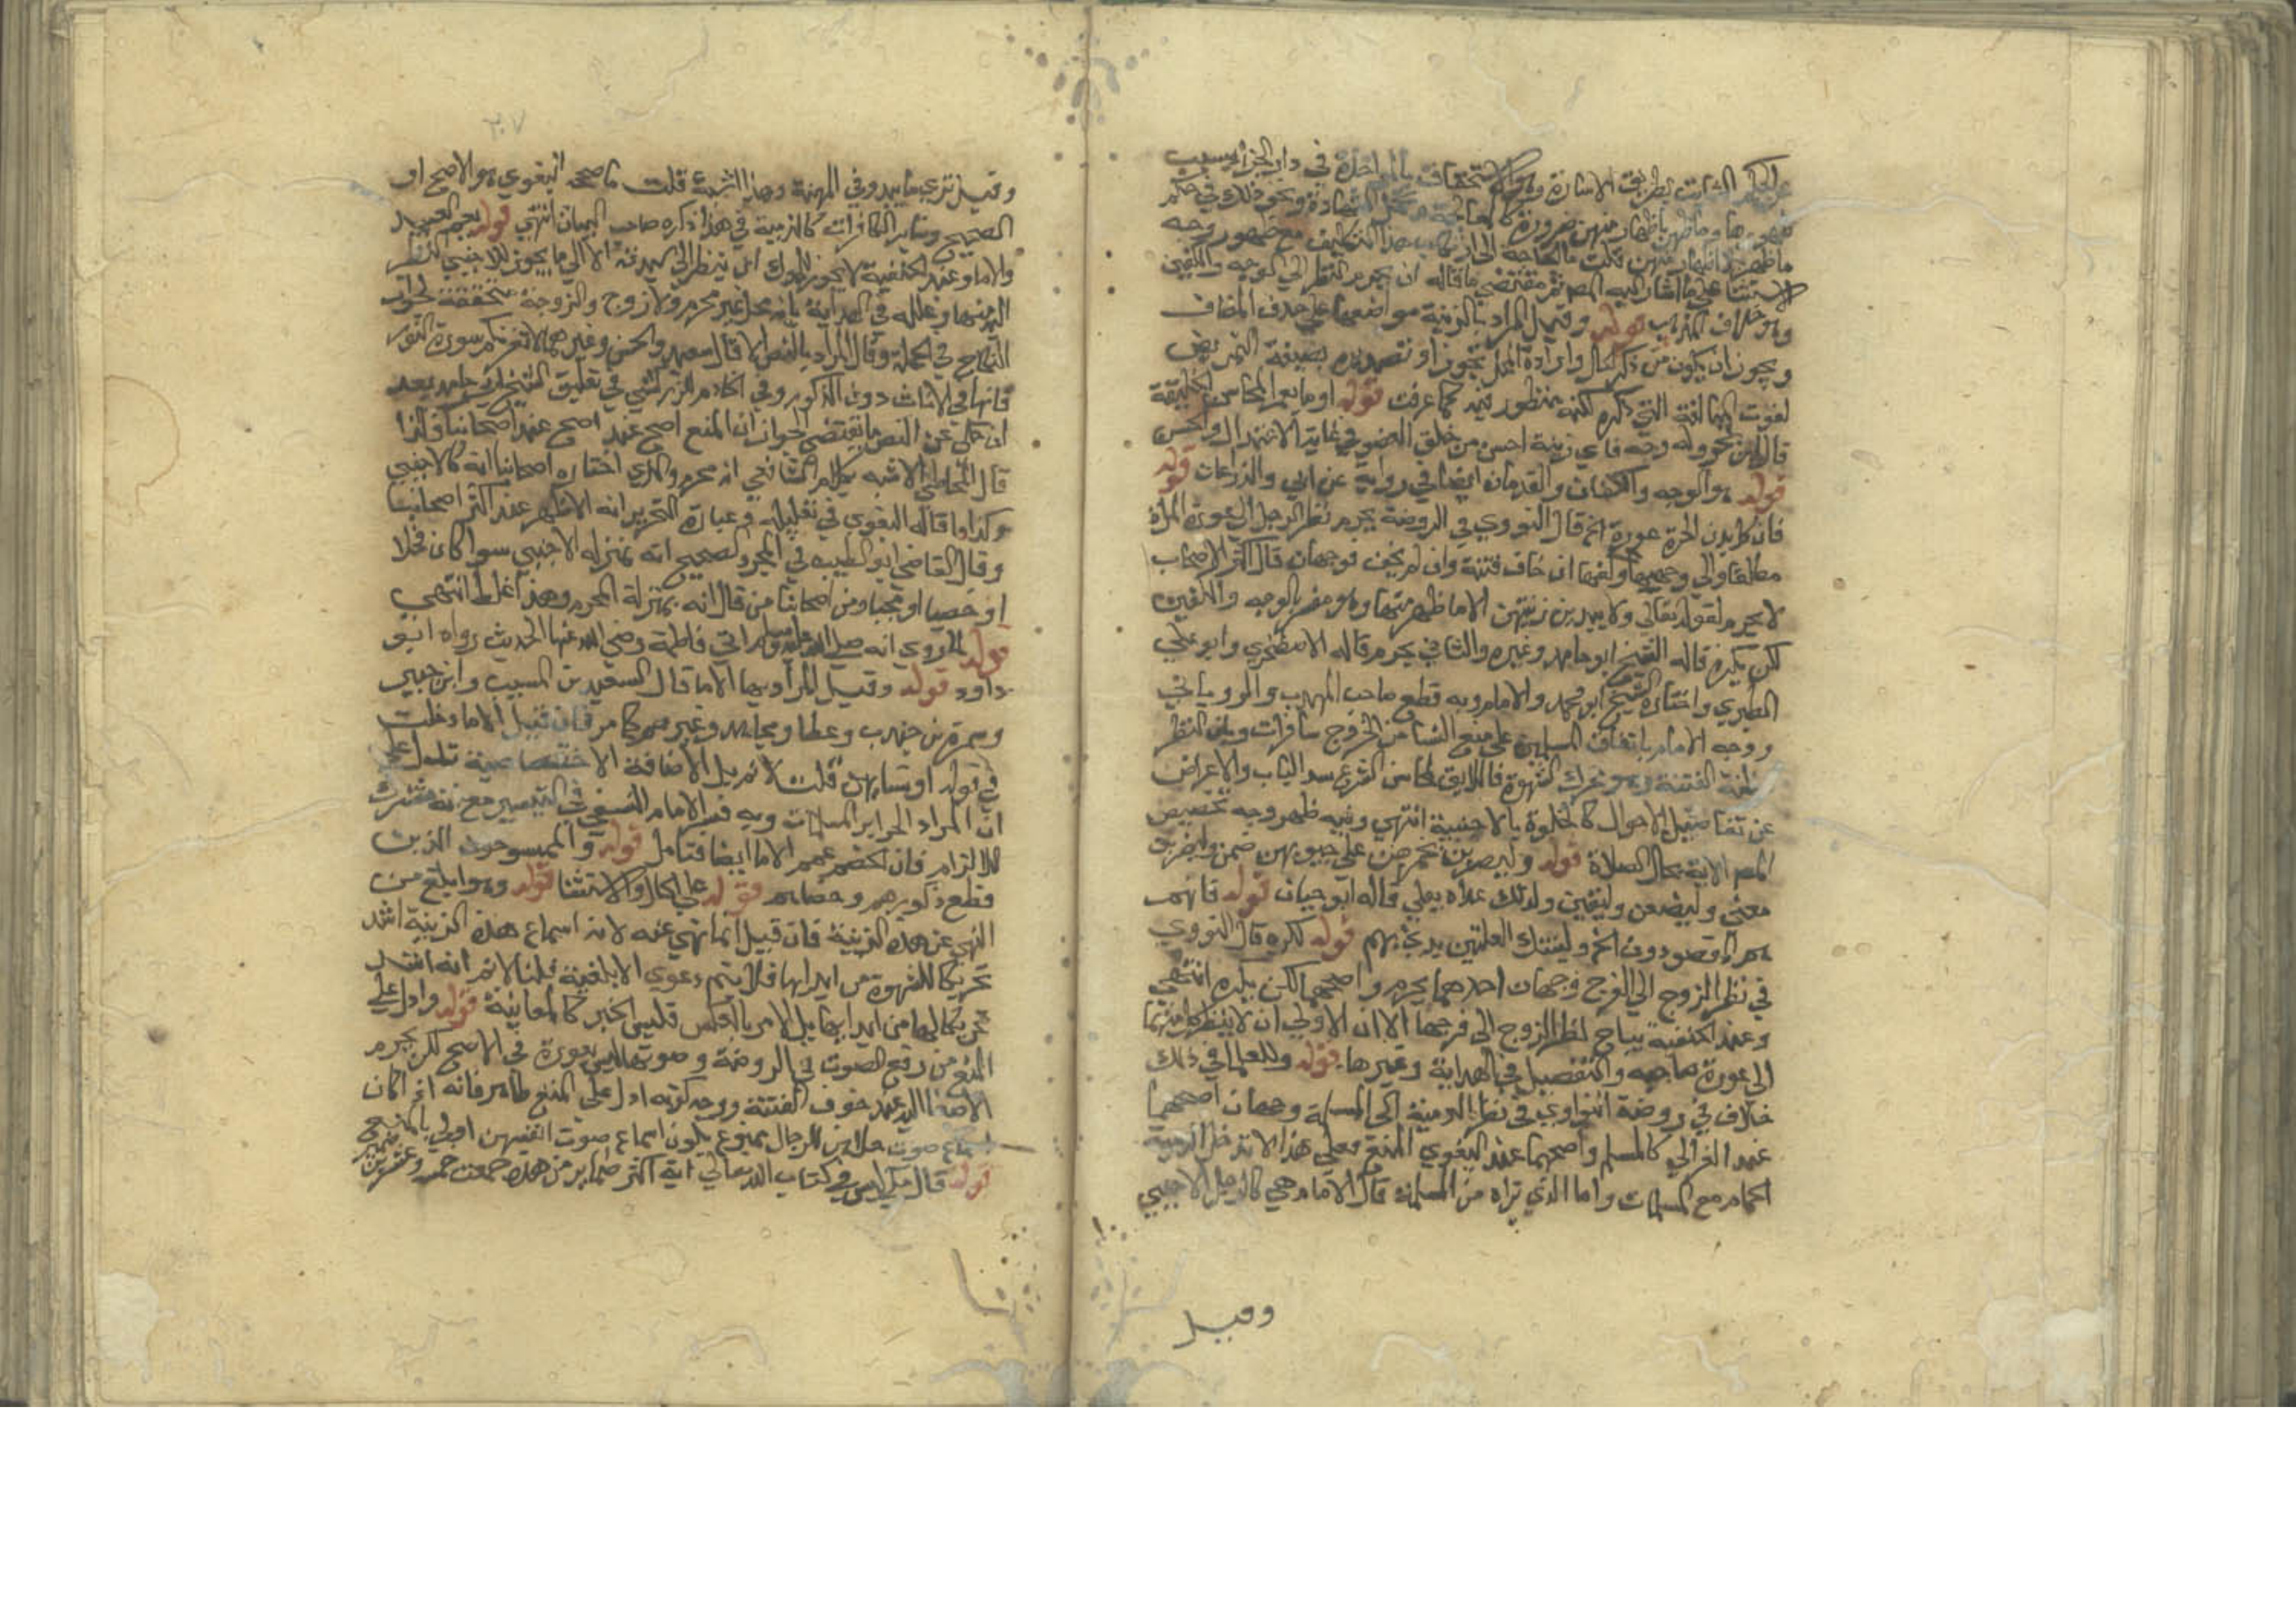 عن الحكم الثابت بطريق الاشارة وهو الاستحقاق بالمواخذة في دار الجزا بسبب
ظهورها وما ظهر باظهار منهن ضرورة كالمعالجة وتحمل الشهادة ونحو ذلك في حكم
ما ظهر لا باظهار منهن قلت ما الحاجة الى ارتكاب هذا التكليف مع ظهور وجه
الاستثنا على ما اشار اليه المص ثم مقتضى ما قاله ان يحرم النظر الى الوجه والكفين
وهو خلاف المذهب قوله وقيل المراد بالزينة مواضعها على حذف المضاف
ويجوز ان يكون من ذكر الحال وارادة المحل تجوزا وتصديره بصيغة التمريض
لفوت المبالغة التي ذكره لكنه منظور فيه كما عرفت قوله او ما يعم المحاسن الخلقية
قال ابن بحر وله وجه فاي زينة احسن من خلق العضو في غاية الاعتدال والحسن
قوله هو الوجه والكفان والقدمان ايضا في رواية عن ابي والذراعات قوله
فان كل بدن الحرة عورة الخ قال النووي في الروضة يحرم نظر الرجل الى عورة المراة
مطلقا والى وجهها وكفيها ان خاف فتنة وان لم يخف فوجهان قال اكثر الاصحاب
لا يحرم لقوله تعالى ولا يبدين زينتهن الا ما ظهر منها وهو مفسر بالوجه والكفين
لكن يكره قاله الشيخ ابو حامد وغيره والثاني يحرم قاله الاصطخري وابو علي
الطبري واختاره الشيخ ابو محمد والامام وبه قطع صاحب المهذب والروياني
ووجه الامام باتفاق المسلمين على منع النسا من الخروج سافرات وبان النظر
مظنة الفتنة وهو محرك الشهوة فاللايق بمحاسن الشرع سد الباب والاعراض
عن تفاصيل الاحوال كالخلوة بالاجنبية انتهى وفيه ظهر وجه تخصيص
المص الاية بحال الصلاة قوله وليضربن بخمرهن على جيوبهن ضمن وليضربن
معنى وليضعن وليلقين ولذلك عداه بعلى قاله ابو حيان قوله فانهم
هم المقصودون الخ ولتينك العلتين بدئ بهم قوله لكره قال النووي
في نظر الزوج الى الفرج وجهان احدهما يحرم واصحهما لكن يكره انتهى
وعند الحنفية يباح لنظر الزوج الى فرجها الا ان الاولى ان لا ينظر كل منهما
الى عورة صاحبه والتفصيل في الهداية وغيرها قوله وللعلما في ذلك
خلاف في روضة النواوي في نظر الذمية الى المسلمة وجهان اصحهما
عند الغزالي كالمسلم واصحهما عند البغوي المنع فعلى هذا لا تدخل الذمية
الحمام مع المسلمات واما الذي تراه من المسلمة قال الامام هي كالرجل الاجنبي
وقيل
٢٠٧
وقيل ترى ما يبدو في المهنة وهذا اشبه قلت ما صححه البغوي هو الاصح او
الصحيح وساير الكافرات كالذمية في هذا ذكره صاحب البيان انتهى قوله يعم العبيد
والاما وعند الحنفية لا يجوز للمملوك ان ينظر الى سيدته الا الى ما يجوز للاجنبي النظر
اليه منها وعلله في الهداية بانه فحل غير محرم ولا زوج والزوجة متحققة لجواز
النكاح في الجملة وقال المراد بالنص الاما قال سعيد والحسن وغيرهما لا تغرنكم سورة النور
فانها في الاناث دون الذكور وفي الخادم للزركشي في تعليق الشيخ ابي حامد بعد
ان حكى عن النص ما يقتضي الجواز ان المنع اصح عند اصحابنا وكذا
قال المحاملي الاشبه بكلام الشافعي انه محرم والذي اختاره اصحابنا انه كالاجنبي
وكذا وما قاله البغوي في تعليله وعبارة التحرير انه الاظهر عند اكثر اصحابنا
وقال القاضي ابو الطيب في المجرد الصحيح انه بمنزلة الاجنبي سوا كان فحلا
او خصيا او مجبوبا ومن اصحابنا من قال انه بمنزلة المحرم وهذا غلط انتهى
قوله لما روي انه صلى الله عليه وسلم اتى فاطمة رضي الله عنها الحديث رواه ابو
داود قوله وقيل المراد بها الاما قال السعيد بن المسيب وابن جبير
وسمرة بن جندب وعطا ومجاهد وغيرهم كما مر فان قيل الاما دخلت
في قوله او نسايهن قلت لا نم بل الاضافة الاختصاصية تدل على
ان المراد الحراير المسلمات وبه فسر الامام النسفي في التيسير مع انه مشترك
الالزام فان الخصم عمم الاما ايضا فتامل قوله والممسوحون الذين
قطع ذكورهم وخصاهم قوله على الحال والاستثنا قوله وهو ابلغ من
النهي عن هذه الزينة فان قيل انما نهي عنه لان اسماع هذه الزينة اشد
تحريكا للشهوة من ابدايها فلا يتم دعوى الابلغية قلنا لا نم انه اشد
تحريكا لها من ابدايها بل الامر بالعكس فليس الخبر كالمعاينة قوله وادل على
المنع من رفع الصوت في الروضة وصوتها ليس بعورة في الاصح لكن يحرم
الاصغا اليه عند خوف الفتنة ووجه كونه ادل على المنع ظاهر فانه اذا كان
اسماع صوت خلاخلهن للرجال ممنوع يكون اسماع صوت انفسهن اولى بالمنع
قوله قال مكي ليس في كتاب الله تعالى اية اكثر ضماير من هذه جمعت خمسة وعشرين ضمير